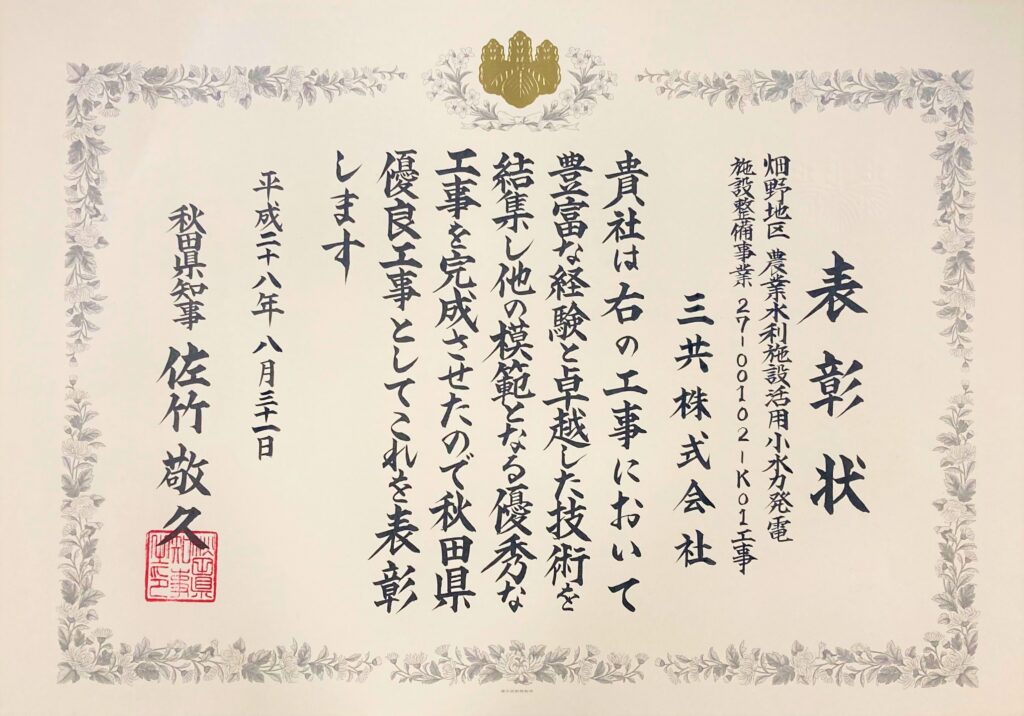 表彰状
畑野地区 農業水利施設活用小水力発電
施設整備事業 27-00102-K01工事
三共株式会社
貴社は右の工事において
豊富な経験と卓越した技術を
結集し他の模範となる優秀な
工事を完成させたので秋田県
優良工事としてこれを表彰
します
平成二十八年八月三十一日
秋田県知事 佐竹敬久